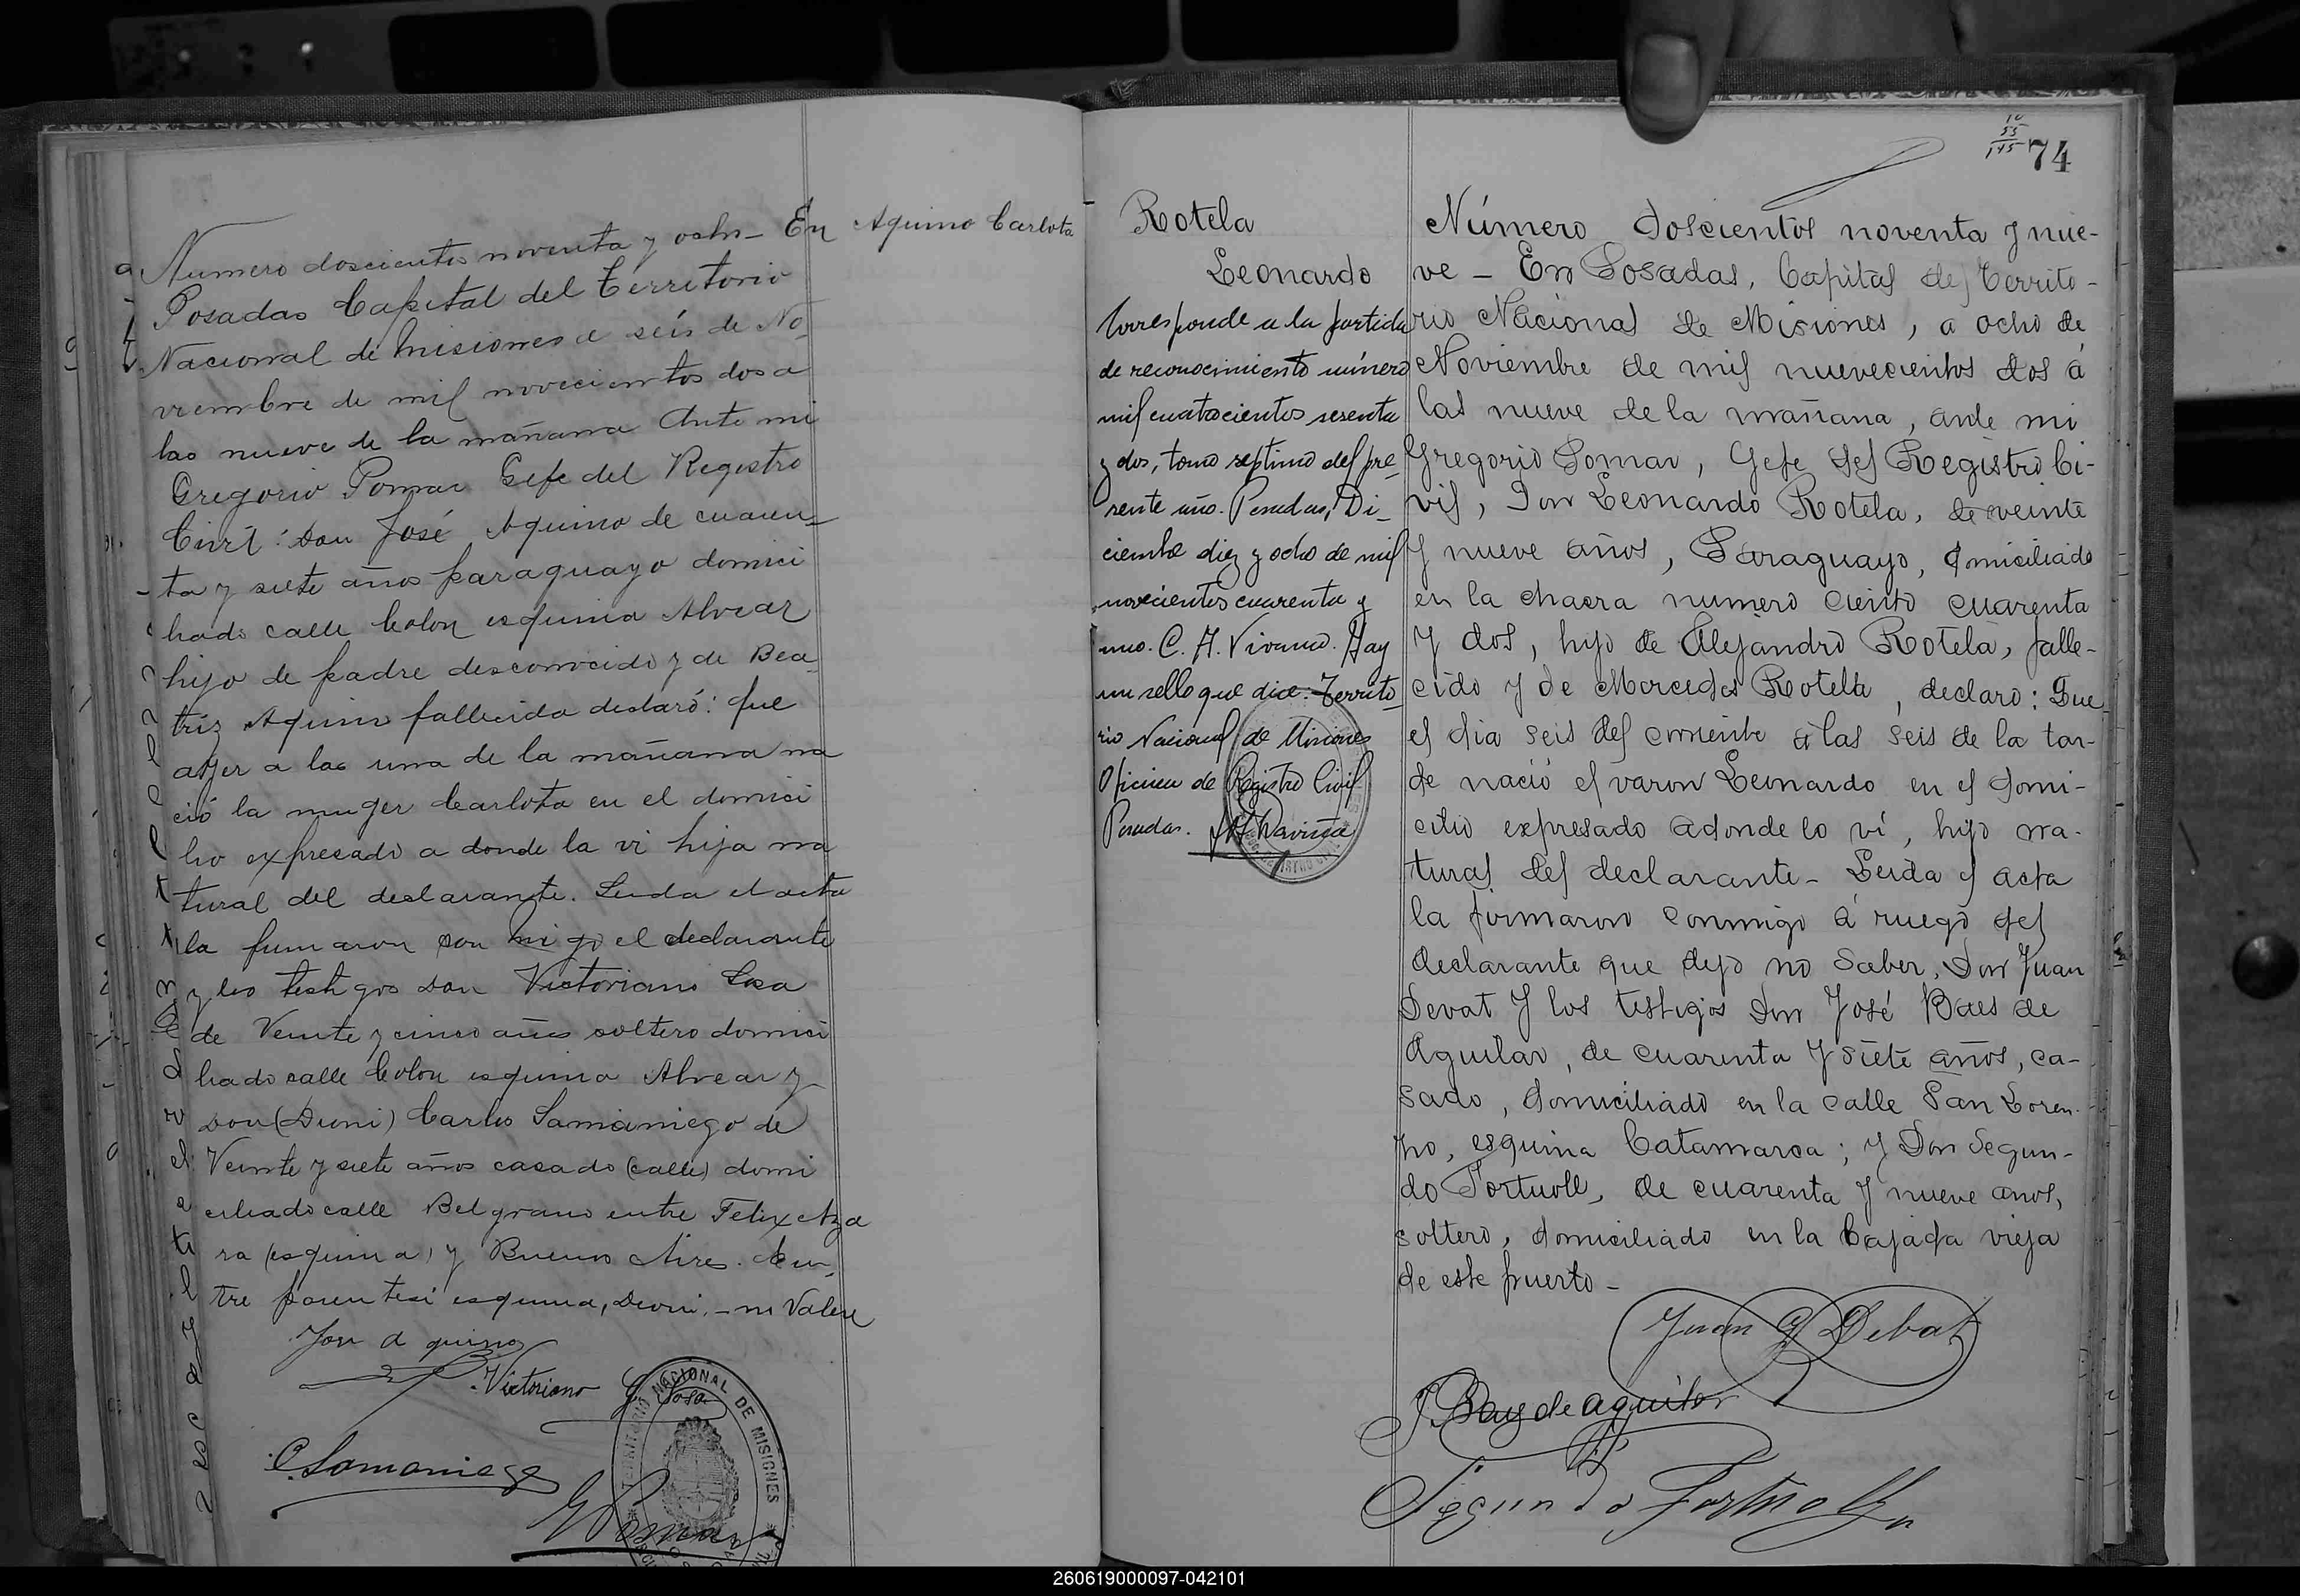 Numero doscientos noventa y ocho - En
Posadas Capital del Territorio
Nacional de Misiones a seis de No-
viembre de mil novecientos dos a
las nueve de la mañana Ante mi
Gregorio Pomar Gefe del Registro
Civil: Don José Aquino de cuaren-
ta y siete años paraguayo domici
liado calle Colon esquina Alvear
hijo de padre desconocido y de Bea-
triz Aquino fallecida declaró: que
ayer a las una de la mañana na
ció la muger Carlota en el domici
lio expresado a donde la vi hija na
tural del declarante. Leida el acta
la firmaron con migo el declarante
y los testigos Don Victoriano Sosa
de Veinte y cinco años soltero domici
liado calle Colon esquina Alvear y
Don (Dioni) Carlos Samaniego de
Veinte y siete años casado (calle) domi
ciliado calle Belgrano entre Felix Aza
ra (esquina) y Buenos Aires. En-
tre parentesi esquina, Dioni - no Valen
Jose Aquino
Victoriano G. Sosa
C. Samaniego
G Pomar
NACIONAL DE MISIONES
Aquino Carlota
74
Rotela
Leonardo
Corresponde a la partida
de reconocimiento número
mil cuatrocientos sesenta
y dos, tomo septimo del pre-
sente año. Posadas, Di-
ciembre diez y ocho de mil
novecientos cuarenta y
uno. C. A. Vivanco. Hay
un sello que dice: Territo-
rio Nacional de Misiones
Oficina de Registro Civil
Posadas.
Número doscientos noventa y nue-
ve - En Posadas, Capital del Territo-
rio Nacional de Misiones, a ocho de
Noviembre de mil nuevecientos dos á
las nueve de la mañana, ante mi
Gregorio Pomar, Gefe del Registro Ci-
vil, Don Leonardo Rotela, de veinte
y nueve años, Paraguayo, domiciliado
en la chacra numero ciento cuarenta
y dos, hijo de Alejandro Rotela, falle-
cido y de Mercedes Rotella, declaro: Que
el dia seis del corriente á las seis de la tar-
de nació el varon Leonardo en el domi-
cilio expresado adonde lo ví, hijo na-
tural del declarante - Leida el acta
la firmaron conmigo á ruego del
declarante que dijo no saber, Don Juan
Devat y los testigos Don José Baes de
Aguilar, de cuarenta y siete años, ca-
sado, domiciliado en la calle San Loren-
zo, esquina Catamarca; y Don Segun-
do Fortuoll, de cuarenta y nueve anos,
soltero, domiciliado en la bajada vieja
de este puerto -
Juan G Debat
J. Bay de aguilar
Segundo
260619000097-042101